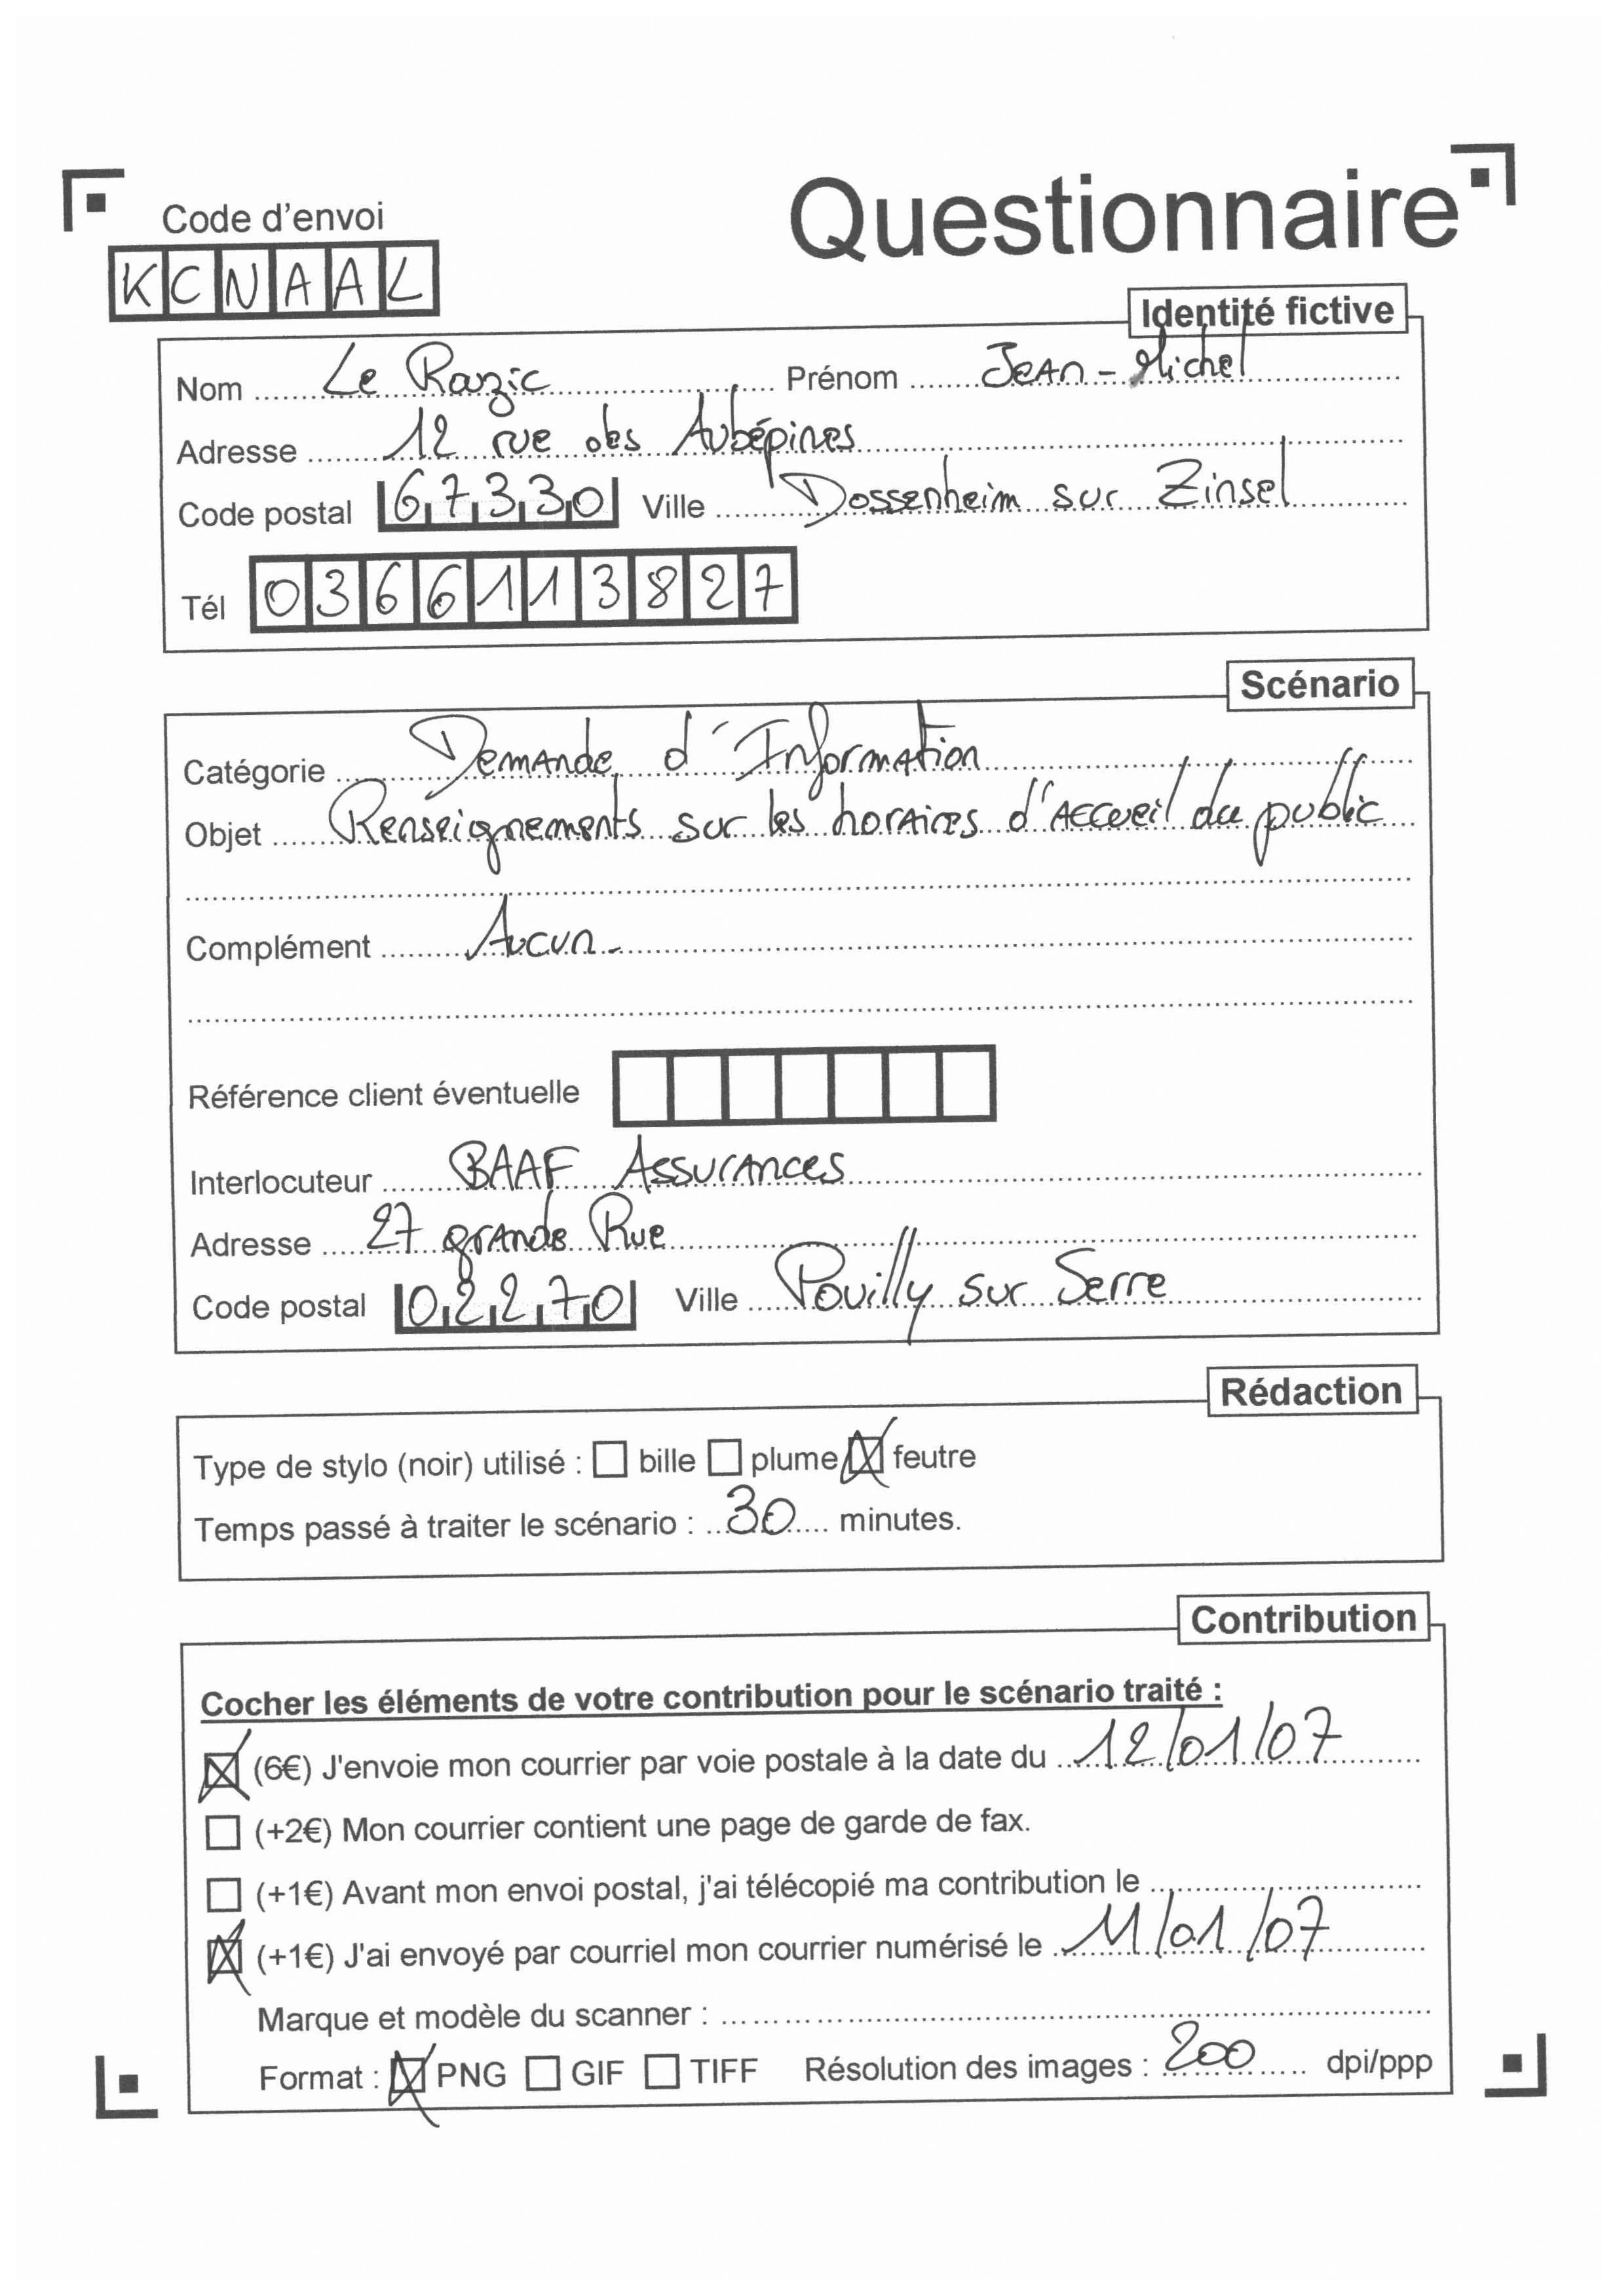 Questionnaire
Code d'envoi
KCNAAL
Identité fictive
Nom Le Razic Prénom Jean-Michel
Adresse 12 rue des Aubépines
Code postal 67330 Ville Dossenheim sur Zinsel
Tél 0366113827
Scénario
Catégorie Demande d'Information
Objet Renseignements sur les horaires d'Accueil du public
Complément Aucun
Référence client éventuelle
Interlocuteur BAAF Assurances
Adresse 27 grande Rue
Code postal 02270 Ville Pouilly sur Serre
Rédaction
Type de stylo (noir) utilisé : bille plume feutre
Temps passé à traiter le scénario : 30 minutes.
Contribution
Cocher les éléments de votre contribution pour le scénario traité :
(6€) J'envoie mon courrier par voie postale à la date du 12/01/07
(+2€) Mon courrier contient une page de garde de fax.
(+1€) Avant mon envoi postal, j'ai télécopié ma contribution le
(+1€) J'ai envoyé par courriel mon courrier numérisé le 11/01/07
Marque et modèle du scanner :
Format : PNG GIF TIFF Résolution des images : 200 dpi/ppp